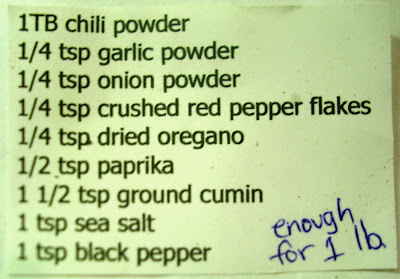 1TB chili powder
1/4 tsp garlic powder
1/4 tsp onion powder
1/4 tsp crushed red pepper flakes
1/4 tsp dried oregano
1/2 tsp paprika
1 1/2 tsp ground cumin
1 tsp sea salt
1 tsp black pepper
enough
for 1 lb.